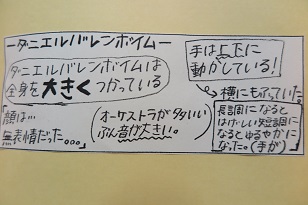 ーダニエルバレンボイムー
ダニエルバレンボイムは
全身を大きくつかっている
手は上下に
動かしている!
→横にもふっていた
「顔は…
無表情だった。。。」
(オーケストラが多い
ぶん音が大きい。)
長調になると
はげしい短調に
なるとゆるやかに
なった。(手が)